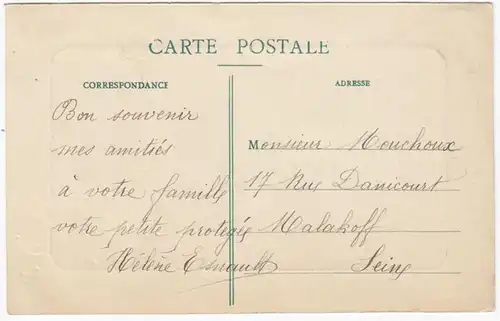 CARTE POSTALE
CORRESPONDANCE
Bon souvenir
mes amitiés
à votre famille
votre petite protegée
Hélène Esnault
ADRESSE
Monsieur Mouchoux
17 Rue Danicourt
Malakoff
Seine